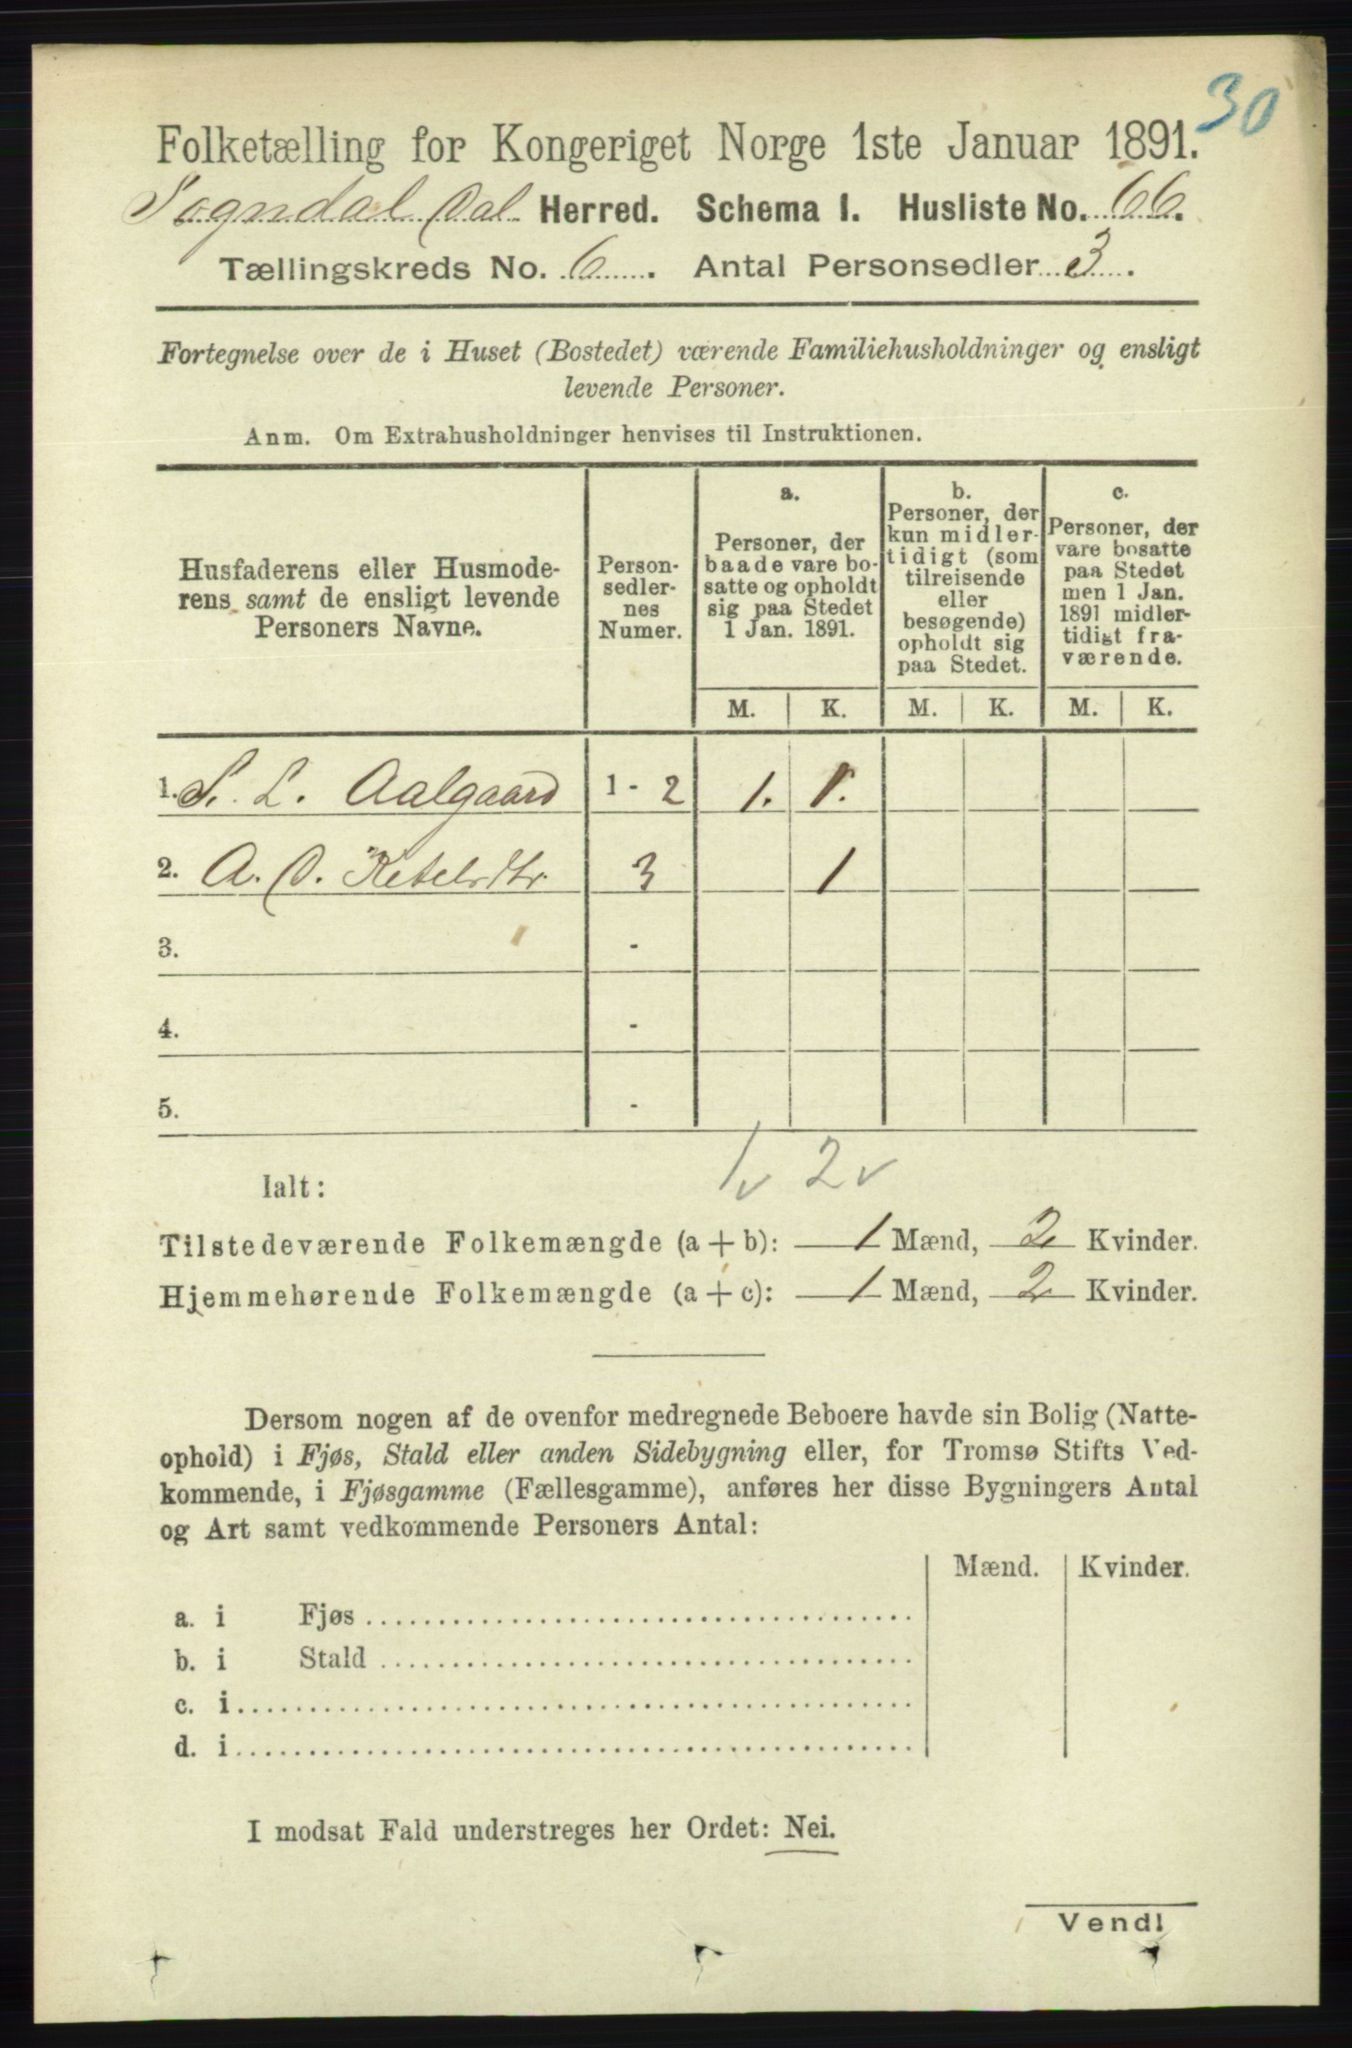 30
Folketælling for Kongeriget Norge 1ste Januar 1891.
Sogndal Dal Herred. Schema I. Husliste No. 66.
Tællingskreds No. 6. Antal Personsedler 3.
Fortegnelse over de i Huset (Bostedet) værende Familiehusholdninger og ensligt
levende Personer.
Anm. Om Extrahusholdninger henvises til Instruktionen.
Husfaderens eller Husmode-
rens samt de ensligt levende
Personers Navne.
Person-
sedler-
nes
Numer.
a.
Personer, der
baade vare bo-
satte og opholdt
sig paa Stedet
1 Jan. 1891.
b.
Personer, der
kun midler-
tidigt (som
tilreisende
eller
besøgende)
opholdt sig
paa Stedet.
c.
Personer, der
vare bosatte
paa Stedet
men 1 Jan.
1891 midler-
tidigt fra-
værende.
M. K. M. K. M. K.
1. S. L. Aalgaard 1 - 2 1. 1.
2. A. O. 3 1
3. -
4. -
5. -
1 v 2 v
Ialt:
Tilstedeværende Folkemængde (a + b): 1 Mænd, 2 Kvinder.
Hjemmehørende Folkemængde (a + c): 1 Mænd, 2 Kvinder.
Dersom nogen af de ovenfor medregnede Beboere havde sin Bolig (Natte-
ophold) i Fjøs, Stald eller anden Sidebygning eller, for Tromsø Stifts Ved-
kommende, i Fjøsgamme (Fællesgamme), anføres her disse Bygningers Antal
og Art samt vedkommende Personers Antal:
Mænd. Kvinder.
a. i Fjøs
b. i Stald
c. i
d. i
I modsat Fald understreges her Ordet: Nei.
Vend!